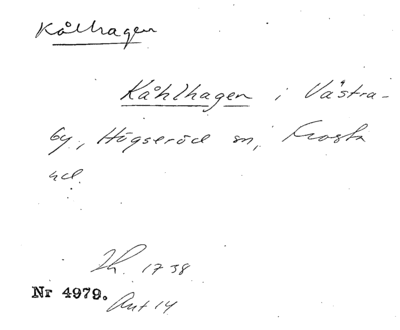 Kålhagen
Kåhlhagen i Västra-
by, Högseröd sn, Frosta
hd.
Lh. 1738
Nr 4979.
Ant 14